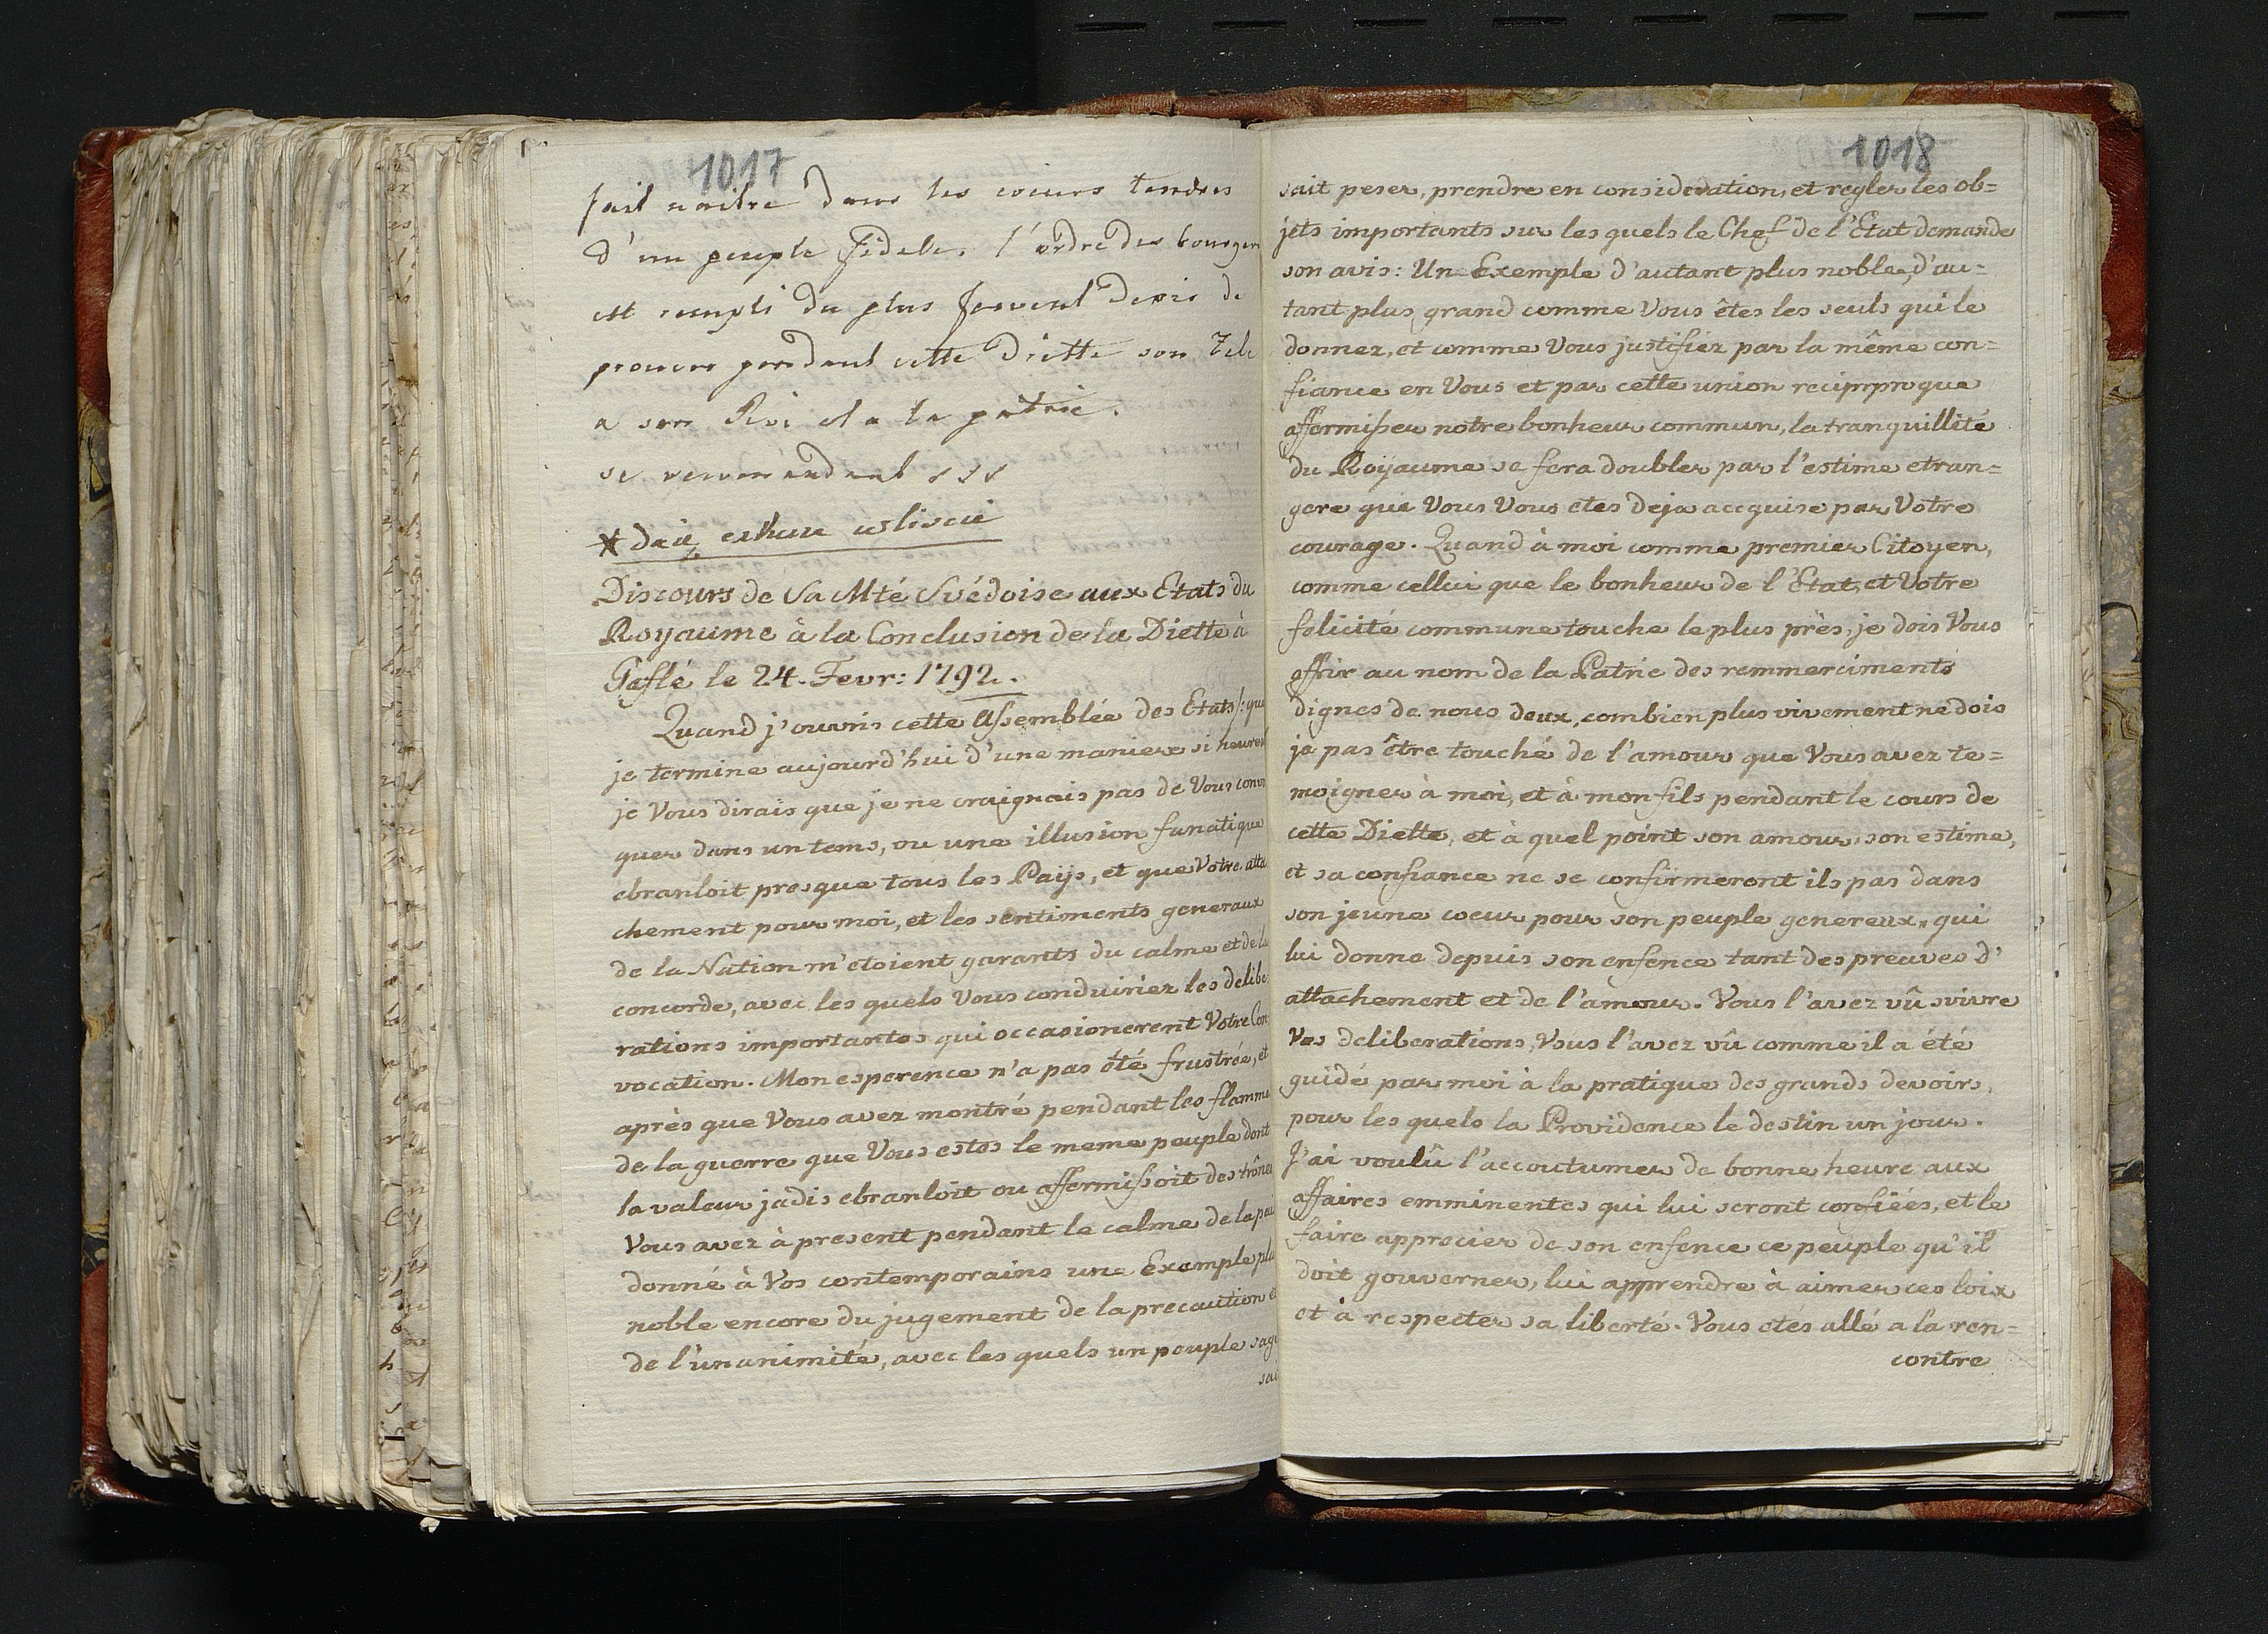 1017
fait naitre dans les coeurs tendres
d'un peuple fidele. l'ordre des bourgeo
est rempli du plus fervent desir de
prouver pendant cette Diette son Zele
a son Roi et a la patrie.
se recomendent
Discours de Sa Mté Svédoise aux Etats du
Royaume à la Conclusion de la Diette à
Geflé le 24. Fevr: 1792.
Quand j'ouvris cette Assemblée des Etats /: que
je termine aujourd'hui d'une maniere si heureus
je Vous dirais que je ne craignais pas de Vous convo
quer dans un tems, ou une illusion fanatique
ebranloit presque tous les Païs, et que Votre atta
chement pour moi, et les sentiments generaux
de la Nation m'etoient garants du calme et de la
concorde, avec les quels Vous conduiriez les delibe
rations importantes qui occasionerent Votre Con
vocation. Mon esperence n'a pas été frustrée, et
après que Vous avez montré pendant les flamme
de la guerre que Vous estes le meme peuple dont
la valeur jadis ebranloit ou affermissoit des trônes
Vous avez à present pendant le calme de la paix
donné à Vos contemporains une Exemple plu
noble encore du jugement de la precaution e
de l'ùnanimité, avec les quels un peuple sage
sai
1018
sait peser, prendre en consideration, et regler les ob=
jets importants sur les quels le Chef de l'Etat demande
son avis: Un Exemple d'autant plus noble, d'au=
tant plus grand comme Vous êtes les seuls qui le
donnez, et comme Vous justifiez par la même con=
fiance en Vous et par cette union recipproque
affermissen notre bonheur commun, la tranquillité
du Roÿaume se fera doubler par l'estime etran=
gere que Vous Vous etes deja acquise par Votre
courage. Quand à moi comme premier Citoyen,
comme cellui que le bonheur de l'Etat, et Votre
felicité commune touche le plus près, je dois Vous
offrir au nom de la Patrie des remmerciments
dignes de nous deux, combien plus vivement ne dois
je pas être touché de l'amour que Vous avez te=
moigner à moi, et à mon fils pendant le cours de
cette Diette, et à quel point son amour, son estime,
et sa confiance ne se confirmeront ils pas dans
son jeune coeur pour son peuple genereux, qui
lui donne depuis son enfence tant des preuves d'
attachement et de l'amour. Vous l'avez vû suivre
Vos deliberations, Vous l'avez vû comme il a été
guidé par moi à la pratique des grands devoirs,
pour les quels la Providence le destin un jour.
J'ai voulû l'accoutumer de bonne heure aux
affaires emminentes qui lui seront confiées, et le
faire apprecier de son enfence ce peuple qu'il
doit gouverner, lui apprendre à aimer ces loix
et à respecter sa liberté. Vous etés allé a la ren=
contre